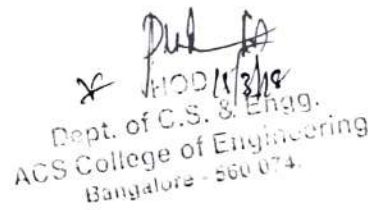 HOD
Dept. of C.S. & Engg.
ACS College of Engineering
Bangalore - 560 074.